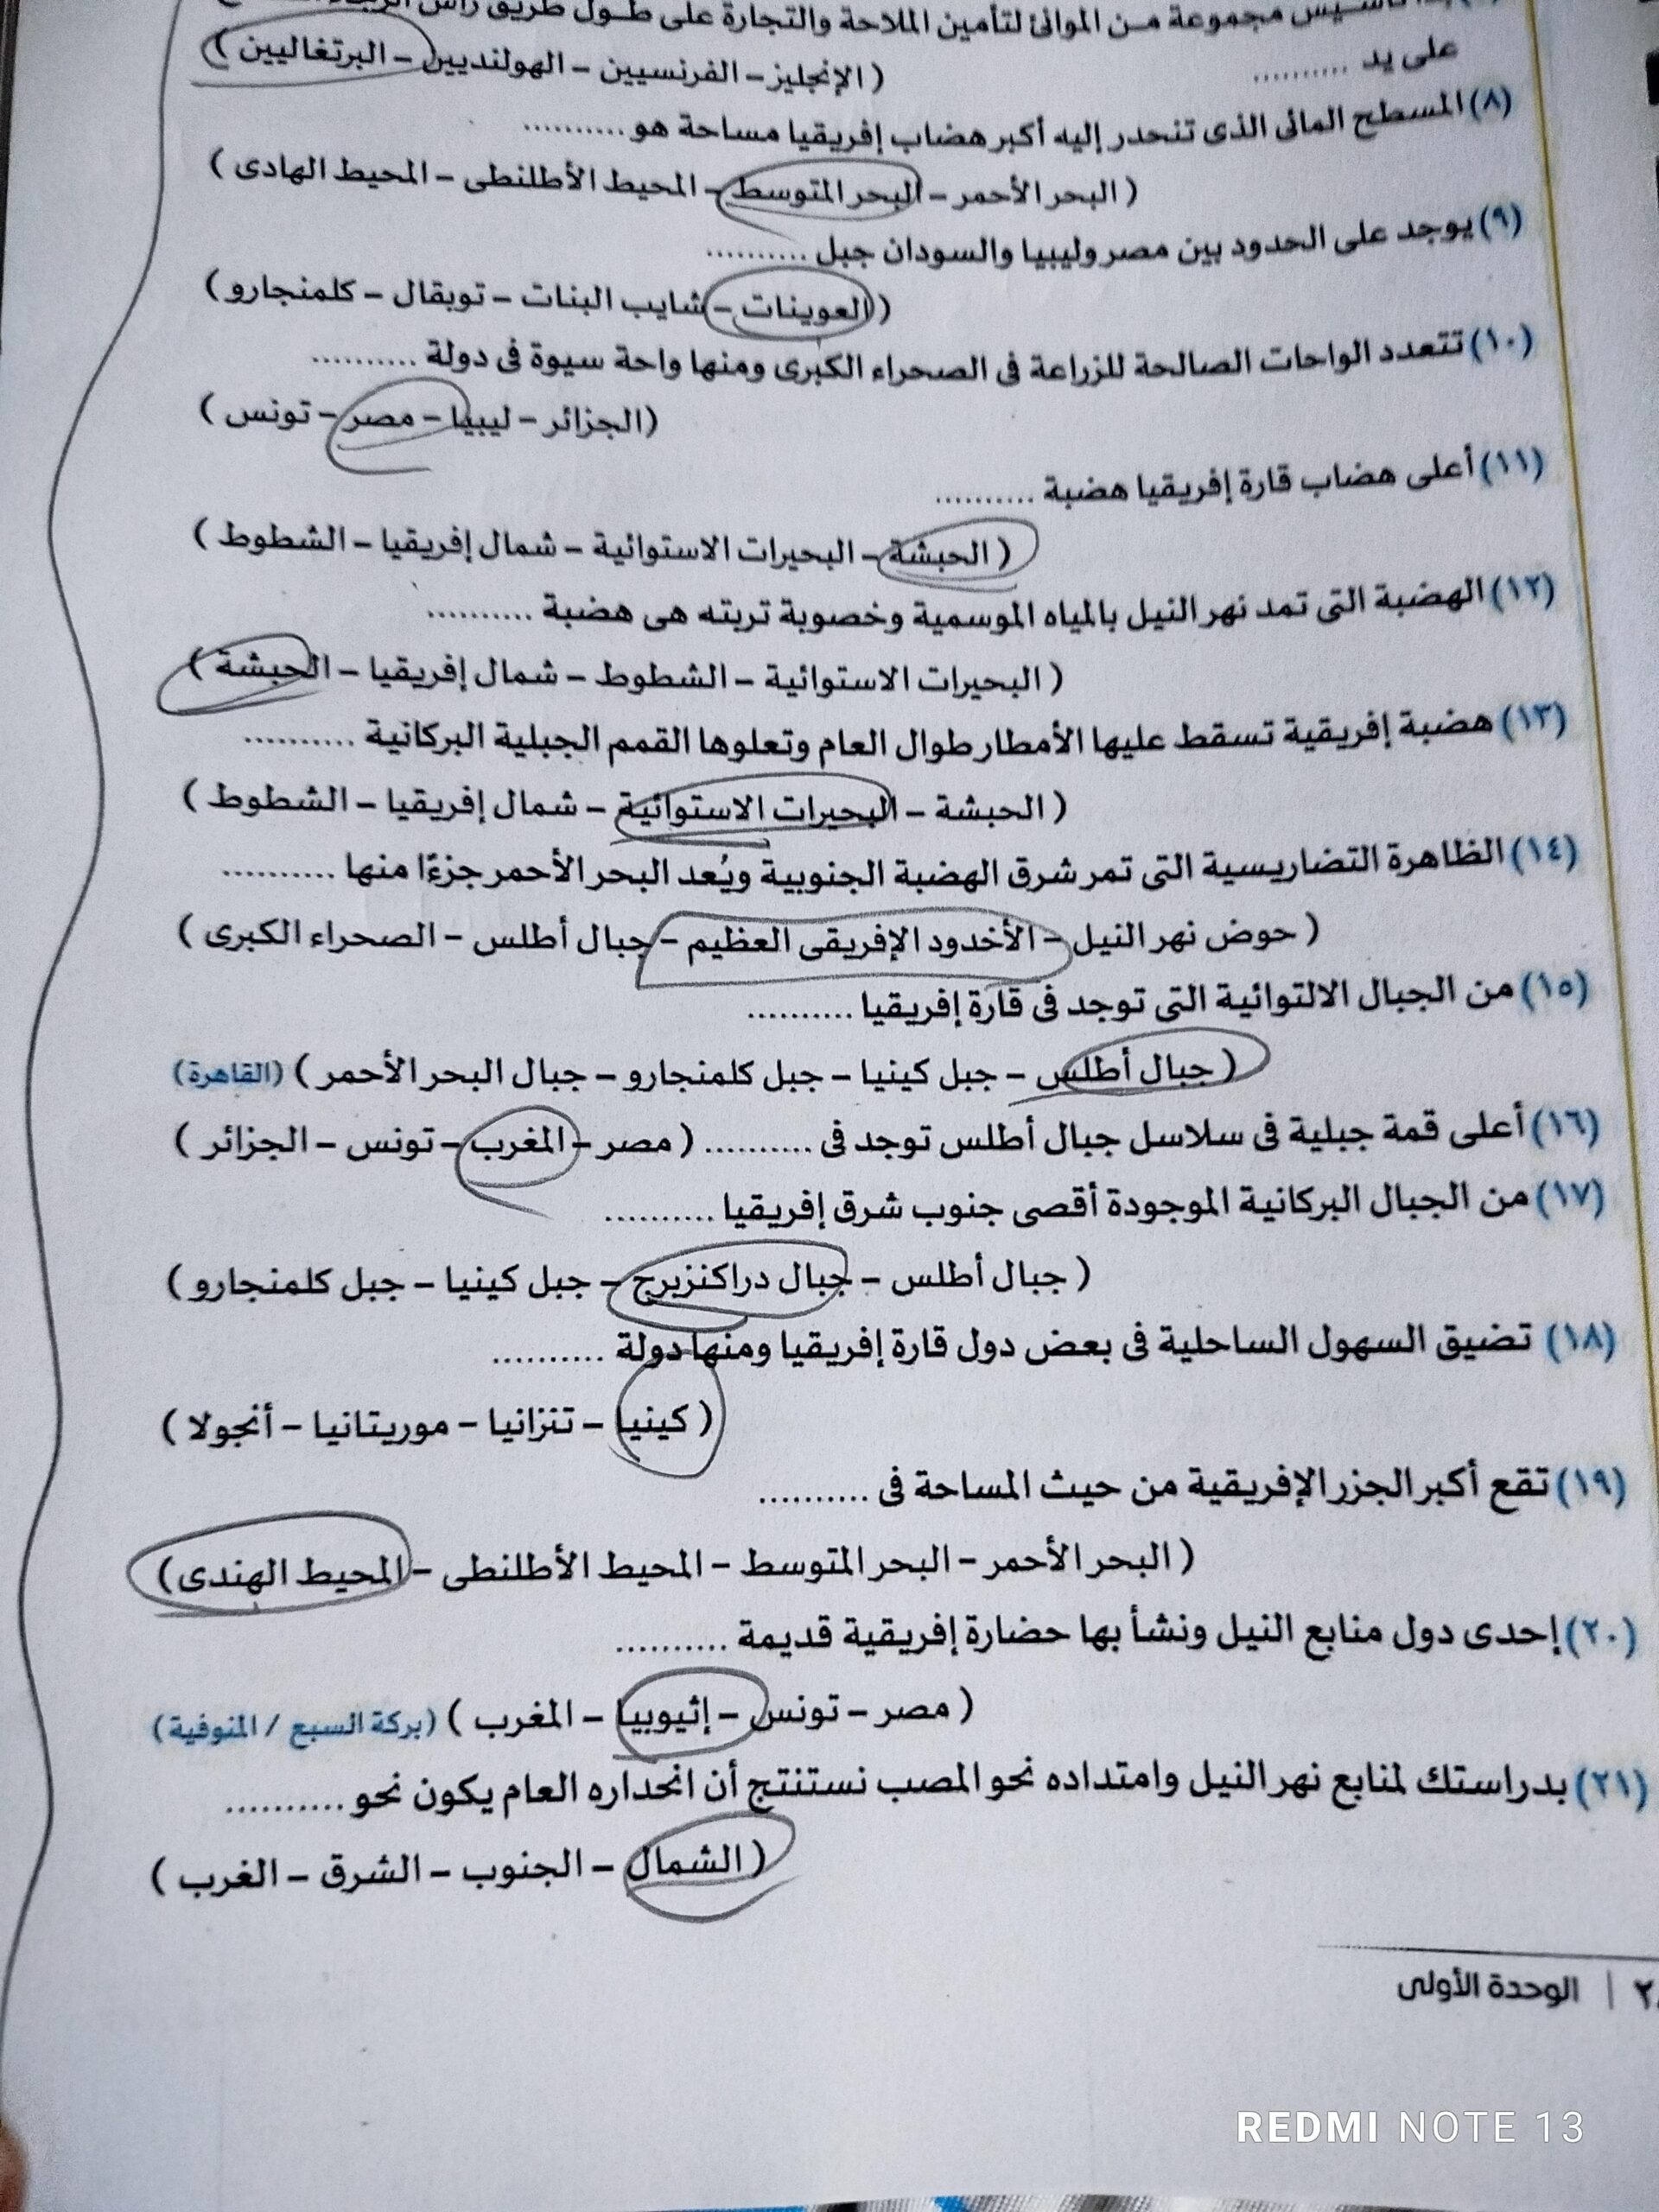 مجموعة من الموانئ لتأمين الملاحة والتجارة على طول طريق رأس
على يد ..........
( الإنجليز – الفرنسيين – الهولنديين – البرتغاليين )
(٨) المسطح المائى الذى تنحدر إليه أكبر هضاب إفريقيا مساحة هو ..........
( البحر الأحمر – البحر المتوسط – المحيط الأطلنطى – المحيط الهادى )
(٩) يوجد على الحدود بين مصر وليبيا والسودان جبل ..........
( العوينات – شايب البنات – توبقال – كلمنجارو )
(١٠) تتعدد الواحات الصالحة للزراعة فى الصحراء الكبرى ومنها واحة سيوة فى دولة ..........
(الجزائر – ليبيا – مصر – تونس )
(١١) أعلى هضاب قارة إفريقيا هضبة ..........
( الحبشة – البحيرات الاستوائية – شمال إفريقيا – الشطوط )
(١٢) الهضبة التى تمد نهر النيل بالمياه الموسمية وخصوبة تربته هى هضبة ..........
( البحيرات الاستوائية – الشطوط – شمال إفريقيا – الحبشة )
(١٣) هضبة إفريقية تسقط عليها الأمطار طوال العام وتعلوها القمم الجبلية البركانية ..........
( الحبشة – البحيرات الاستوائية – شمال إفريقيا – الشطوط )
(١٤) الظاهرة التضاريسية التى تمر شرق الهضبة الجنوبية ويُعد البحر الأحمر جزءًا منها ..........
( حوض نهر النيل – الأخدود الإفريقى العظيم – جبال أطلس – الصحراء الكبرى )
(١٥) من الجبال الالتوائية التى توجد فى قارة إفريقيا ..........
( جبال أطلس – جبل كينيا – جبل كلمنجارو – جبال البحر الأحمر ) (القاهرة)
(١٦) أعلى قمة جبلية فى سلاسل جبال أطلس توجد فى .......... ( مصر – المغرب – تونس – الجزائر )
(١٧) من الجبال البركانية الموجودة أقصى جنوب شرق إفريقيا ..........
( جبال أطلس – جبال دراكنزبرج – جبل كينيا – جبل كلمنجارو )
(١٨) تضيق السهول الساحلية فى بعض دول قارة إفريقيا ومنها دولة ..........
( كينيا – تنزانيا – موريتانيا – أنجولا )
(١٩) تقع أكبر الجزر الإفريقية من حيث المساحة فى ..........
( البحر الأحمر – البحر المتوسط – المحيط الأطلنطى – المحيط الهندى )
(٢٠) إحدى دول منابع النيل ونشأ بها حضارة إفريقية قديمة ..........
( مصر – تونس – إثيوبيا – المغرب ) (بركة السبع / المنوفية)
(٢١) بدراستك لمنابع نهر النيل وامتداده نحو المصب نستنتج أن انحداره العام يكون نحو ..........
( الشمال – الجنوب – الشرق – الغرب )
| الوحدة الأولى
REDMI NOTE 13